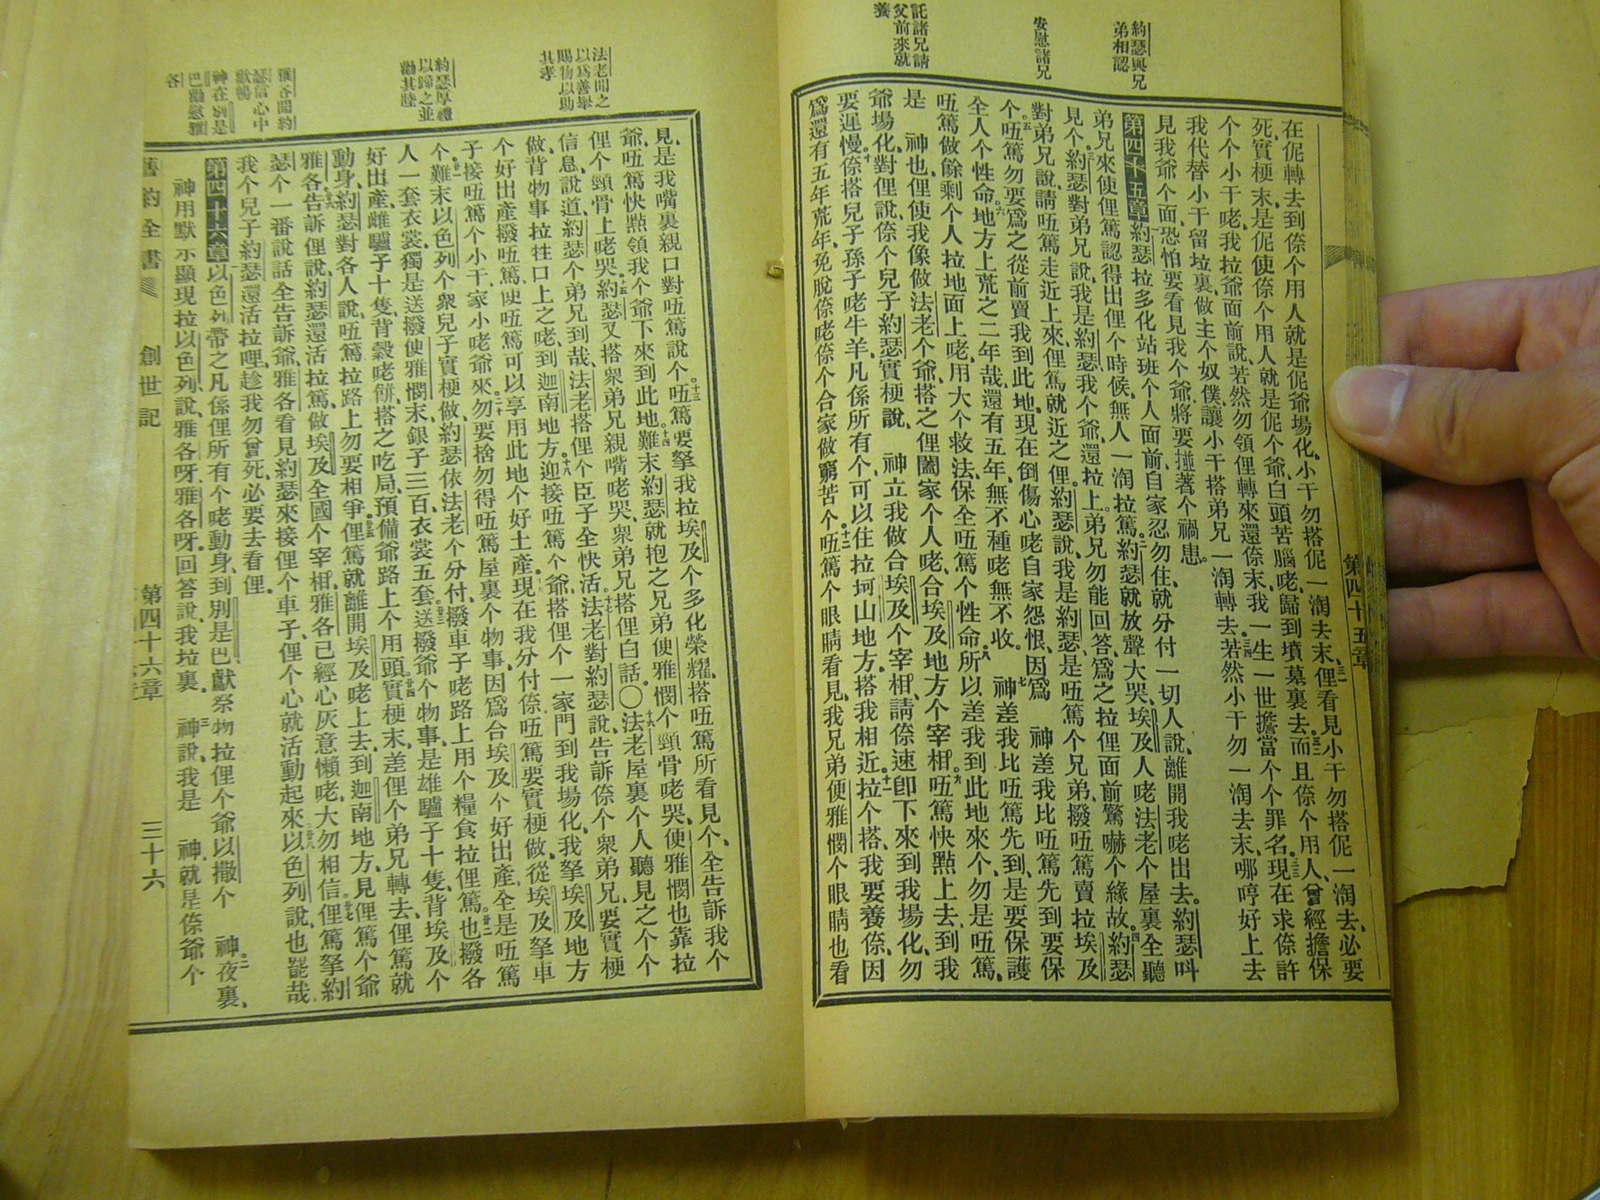 約瑟與兄
弟相認
安慰諸兄
託諸兄請
父前來就
養
第四十五章
在伲轉去到倷个用人就是伲爺場化、小干勿搭伲一淘去末、俚看見小干勿搭伲一淘去、必要
死、實梗末、是伲使倷个用人、就是伲个爺、白頭苦腦咾歸到墳墓裏去、而且倷个用人、曾經擔保
个个小干咾、我拉爺面前說、若然勿領俚轉來還倷末、我一生一世擔當个个罪名、現在求倷許
我代替小干留垃裏、做主个奴僕、讓小干搭弟兄一淘轉去、若然小干勿一淘去末、哪哼好上去
見我爺个面、恐怕要看見我个爺將要撞著个禍患。
第四十五章 約瑟拉多化站班个人面前、自家忍勿住、就分付一切人說、離開我咾出去。約瑟呌
弟兄來使俚篤認得出俚个時候、無人一淘拉篤、約瑟就放聲大哭、埃及人咾法老个屋裏全聽
見个、約瑟對弟兄說、我是約瑟、我个爺還拉上。弟兄勿能回答、爲之拉俚面前驚嚇个緣故。約瑟
對弟兄說、請唔篤走近上來、俚篤就走近之俚。約瑟說、我是約瑟、是唔篤个兄弟、撥唔篤賣拉埃及
个。唔篤勿要爲之從前賣我到此地、現在倒傷心咾自家怨恨、因爲 神差我比唔篤先到、要保
全人个性命。地方上荒之二年哉、還有五年、無不種咾無不收。 神差我比唔篤先到、是要保護
唔篤做餘剩个人拉地面上咾、用大个救法、保全唔篤个性命。所以差我到此地來个、勿是唔篤、
是 神也、俚使我像做法老个爺、搭之俚闔家个人咾、合埃及地方个宰相。唔篤快點上去、到我
爺場化、對俚說、倷个兒子約瑟實梗說、 神立我做合埃及个宰相、請倷速卽下來到我場化、勿
要遲慢。倷搭兒子孫子咾牛羊、凡係所有个、可以住拉坷山地方、搭我相近。拉个搭、我要養倷、因
爲還有五年荒年、免脫倷咾倷个合家做窮苦个。唔篤个眼睛看見、我兄弟便雅憫个眼睛也看
法老聞之
以爲善舉
賜物以助
其孝
約瑟厚禮
以歸之並
勸其睦
雅各聞約
瑟信心中
歡暢
神在別是
巴勸慰雅
各
見、是我嘴裏親口對唔篤說个。唔篤要拏我拉埃及个多化榮耀、搭唔篤所看見个、全告訴我个
爺、唔篤快點領我个爺下來到此地。難末約瑟就抱之兄弟便雅憫个頸骨咾哭、便雅憫也靠拉
俚个頸骨上咾哭。約瑟又搭衆弟兄親嘴咾哭、衆弟兄搭俚白話。〇法老屋裏个人聽見之个个
信息、說道、約瑟个弟兄到哉、法老搭俚个臣子全快活。法老對約瑟說、告訴倷个衆弟兄、要實梗
做、背物事拉牲口上之咾、到迦南地方、迎接唔篤个爺、搭俚个一家門到我場化、我拏埃及地方
个好出產撥唔篤、使唔篤可以享用此地个好土產。現在我分付倷、唔篤要實梗做、從埃及拏車
子接唔篤个小干家小咾爺來。勿要捨勿得唔篤屋裏个物事、因爲合埃及个好出產全是唔篤
个。難末以色列个衆兒子實梗做、約瑟依法老个分付、撥車子咾路上用个糧食拉俚篤。也撥各
人一套衣裳、獨是送撥便雅憫末、銀子三百衣裳五套。送撥爺个物事、是雄驢子十隻、背埃及个
好出產、雌驢子十隻、背穀咾餅搭之吃局、預備爺路上个用頭。實梗末、差俚个弟兄轉去、俚篤就
動身、約瑟對各人說、唔篤拉路上勿要相爭。俚篤就離開埃及咾上去、到迦南地方、見俚篤个爺
雅各。告訴俚說、約瑟還活拉篤、做埃及全國个宰相、雅各已經心灰意懶咾、大勿相信。俚篤拏約
瑟个一番說話、全告訴爺、雅各看見約瑟來接俚个車子、俚个心就活動起來。以色列說、也罷哉、
我个兒子約瑟還活拉哩、趁我勿曾死、必要去看俚。
第四十六章 以色列帶之凡係俚所有个咾動身、到別是巴、獻祭物拉俚个爺以撒个 神。夜裏、
神用默示顯現拉以色列、說、雅各呀、雅各呀。回答說、我垃裏。 神說、我是 神、就是倷爺个
舊約全書 創世記 第四十六章 三十六